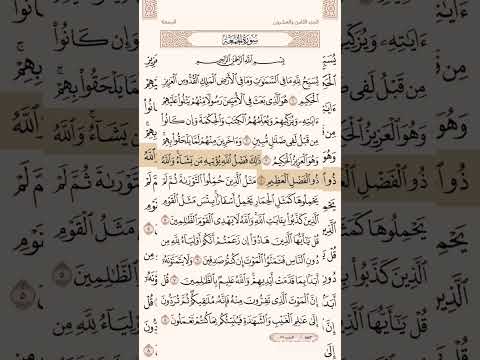 الجزء الثامن والعشرون
الجمعة
سُورَةُ الجُمُعَةِ
بِسْمِ ٱللَّهِ ٱلرَّحْمَٰنِ ٱلرَّحِيمِ
يُسَبِّحُ لِلَّهِ مَا فِي ٱلسَّمَٰوَٰتِ وَمَا فِي ٱلْأَرْضِ ٱلْمَلِكِ ٱلْقُدُّوسِ ٱلْعَزِيزِ
ٱلْحَكِيمِ ١ هُوَ ٱلَّذِي بَعَثَ فِي ٱلْأُمِّيِّـۧنَ رَسُولًا مِّنْهُمْ يَتْلُوا۟ عَلَيْهِمْ
ءَايَٰتِهِۦ وَيُزَكِّيهِمْ وَيُعَلِّمُهُمُ ٱلْكِتَٰبَ وَٱلْحِكْمَةَ وَإِن كَانُوا۟
مِن قَبْلُ لَفِي ضَلَٰلٍ مُّبِينٍ ٢ وَءَاخَرِينَ مِنْهُمْ لَمَّا يَلْحَقُوا۟ بِهِمْ
وَهُوَ ٱلْعَزِيزُ ٱلْحَكِيمُ ٣ ذَٰلِكَ فَضْلُ ٱللَّهِ يُؤْتِيهِ مَن يَشَآءُ وَٱللَّهُ
ذُو ٱلْفَضْلِ ٱلْعَظِيمِ ٤ مَثَلُ ٱلَّذِينَ حُمِّلُوا۟ ٱلتَّوْرَىٰةَ ثُمَّ لَمْ
يَحْمِلُوهَا كَمَثَلِ ٱلْحِمَارِ يَحْمِلُ أَسْفَارًۢا بِئْسَ مَثَلُ ٱلْقَوْمِ
ٱلَّذِينَ كَذَّبُوا۟ بِـَٔايَٰتِ ٱللَّهِ وَٱللَّهُ لَا يَهْدِي ٱلْقَوْمَ ٱلظَّٰلِمِينَ ٥
قُلْ يَٰٓأَيُّهَا ٱلَّذِينَ هَادُوٓا۟ إِن زَعَمْتُمْ أَنَّكُمْ أَوْلِيَآءُ لِلَّهِ مِن
دُونِ ٱلنَّاسِ فَتَمَنَّوُا۟ ٱلْمَوْتَ إِن كُنتُمْ صَٰدِقِينَ ٦ وَلَا يَتَمَنَّوْنَهُۥٓ
أَبَدًۢا بِمَا قَدَّمَتْ أَيْدِيهِمْ وَٱللَّهُ عَلِيمٌۢ بِٱلظَّٰلِمِينَ ٧ قُلْ
إِنَّ ٱلْمَوْتَ ٱلَّذِي تَفِرُّونَ مِنْهُ فَإِنَّهُۥ مُلَٰقِيكُمْ ثُمَّ تُرَدُّونَ
إِلَىٰ عَٰلِمِ ٱلْغَيْبِ وَٱلشَّهَٰدَةِ فَيُنَبِّئُكُم بِمَا كُنتُمْ تَعْمَلُونَ ٨
٥٥٣